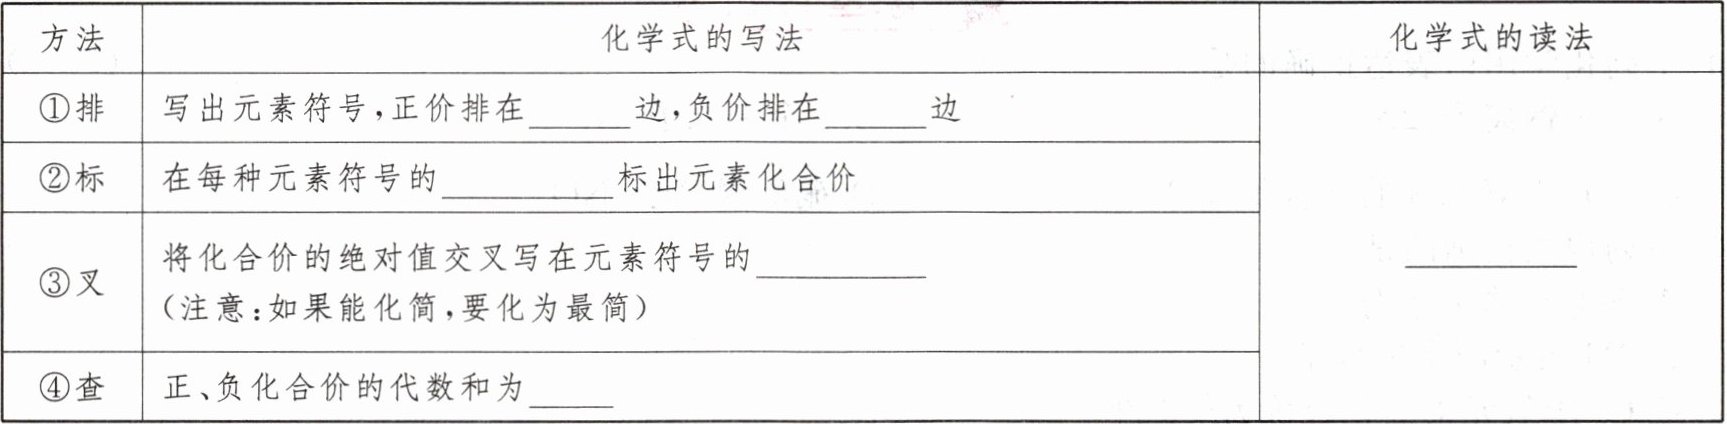 方法 化学式的写法 化学式的读法
①排 写出元素符号,正价排在______边,负价排在______边
②标 在每种元素符号的__________标出元素化合价
③叉 将化合价的绝对值交叉写在元素符号的__________
(注意:如果能化简,要化为最简)
__________
④查 正、负化合价的代数和为_____